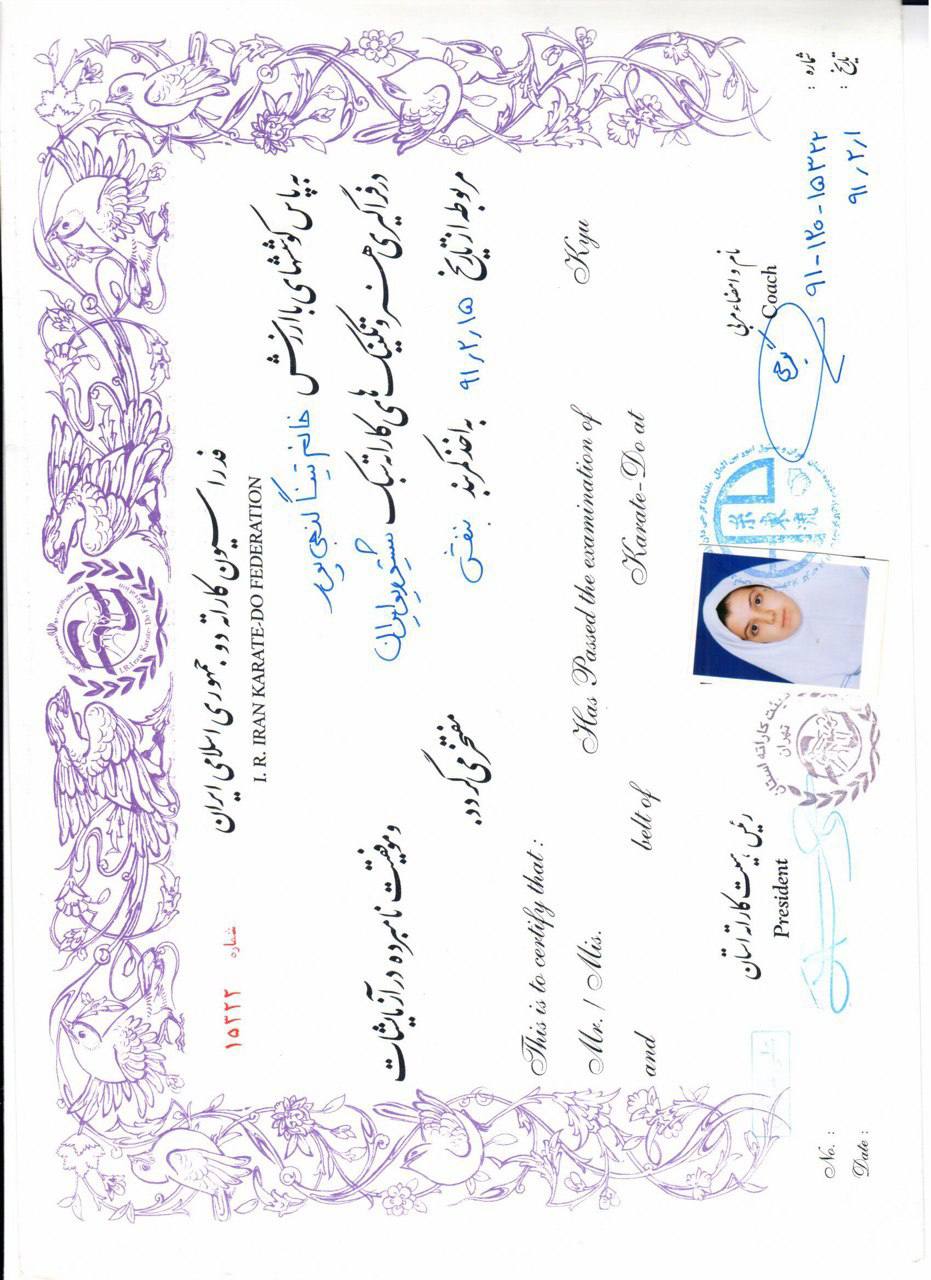 I.R.Iran Karate-Do Federation
فدراسیون کاراته دو جمهوری اسلامی ایران
شماره ۱۵۳۲۲
I. R. IRAN KARATE-DO FEDERATION
به پاس کوششهای با ارزش خانم تینا گنجی پور
در فراگیری هنر و تکنیک های کاراته سبک شیتوریو ایران و موفقیت نامبرده در آزمایشات
مربوطه از تاریخ ۹۱٫۲٫۱۵ به اخذ کمربند بنفش مفتخر می گردد.
This is to certify that :
Mr. / Mis. Has Passed the examination of Kyu
and belt of Karate-Do at
نام و امضاء مربی
Coach
رئیس هیئت کاراته استان
President
هیئت کاراته استان
تهران
糸東流
شماره : ۹۱-۱۲۰-۱۵۳۲۲
تاریخ : ۹۱٫۲٫۱
No. :
Date :